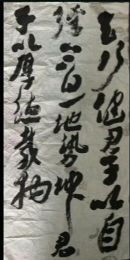 天行健君子以自
強不息地勢坤君
子以厚德載物